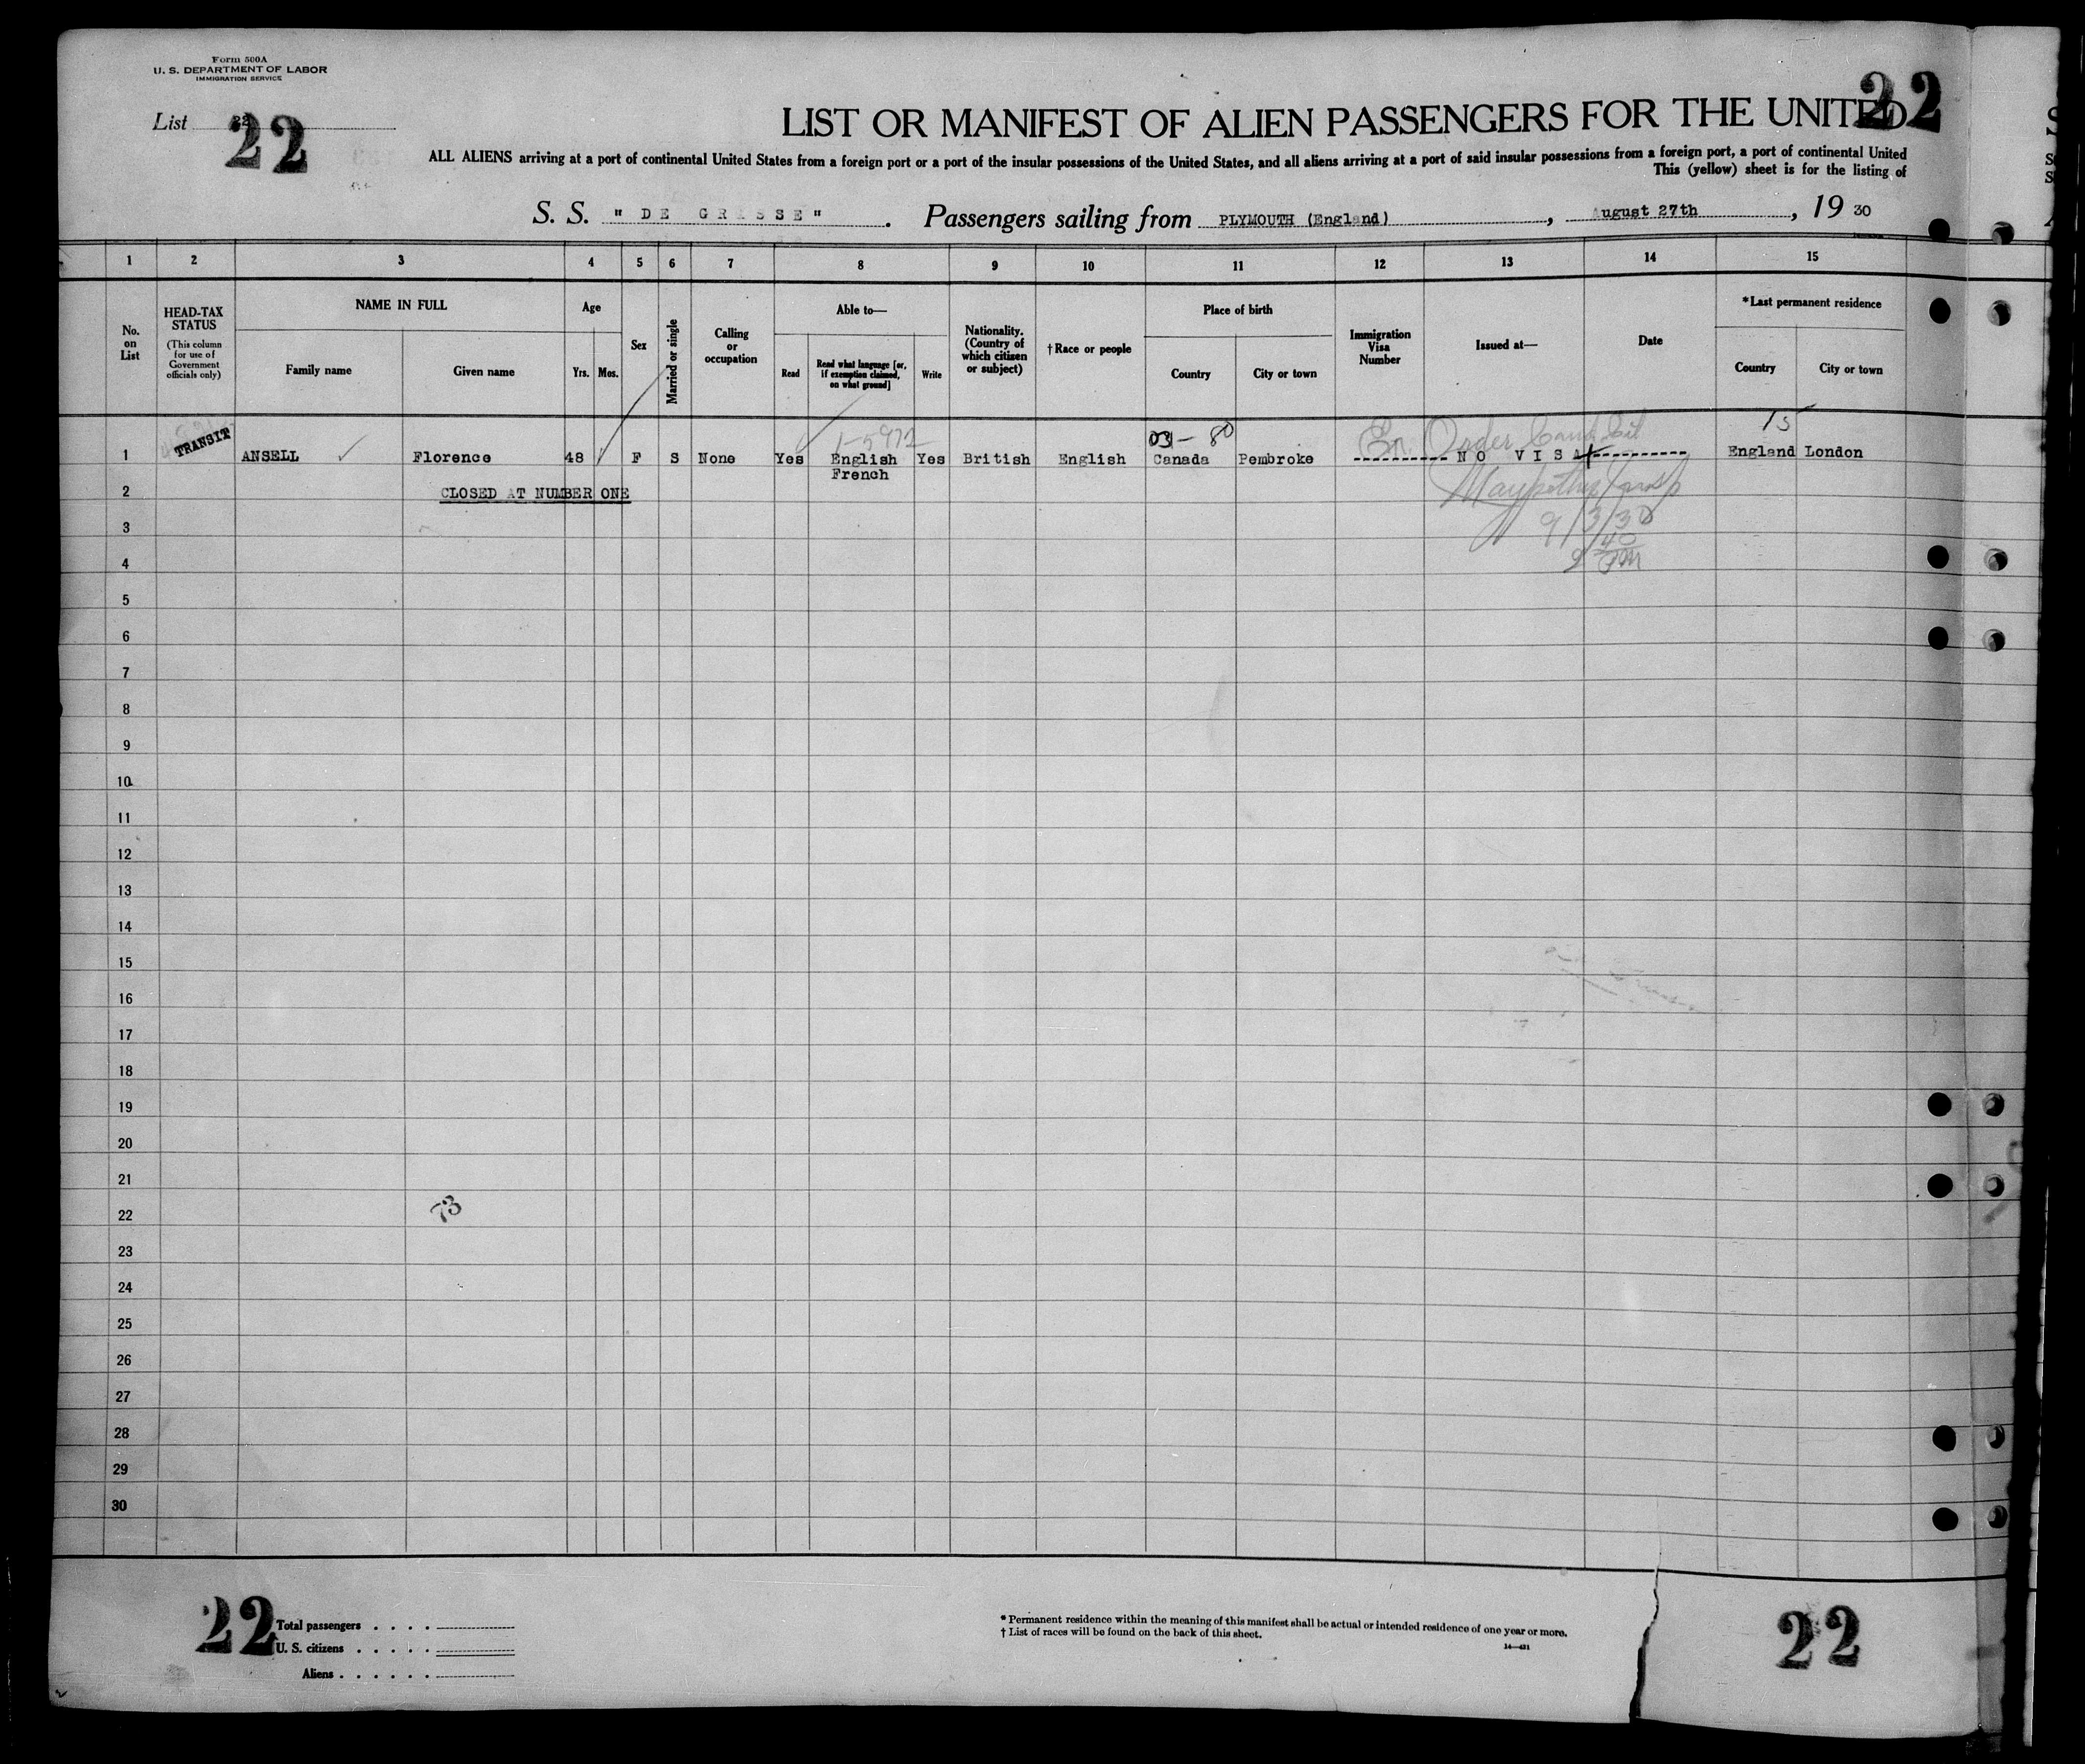 Form 500A
U. S. DEPARTMENT OF LABOR
IMMIGRATION SERVICE
List 22
22
22
LIST OR MANIFEST OF ALIEN PASSENGERS FOR THE UNITED
ALL ALIENS arriving at a port of continental United States from a foreign port or a port of the insular possessions of the United States, and all aliens arriving at a port of said insular possessions from a foreign port, a port of continental United
This (yellow) sheet is for the listing of
S. S. " DE GRASSE " . Passengers sailing from PLYMOUTH (England) , August 27th , 19 30
1 2 3 4 5 6 7 8 9 10 11 12 13 14 15
No. on List
HEAD-TAX STATUS
(This column for use of Government officials only)
NAME IN FULL
Family name
Given name
Age
Yrs.
Mos.
Sex
Married or single
Calling or occupation
Able to—
Read
Read what language [or, if exemption claimed, on what ground]
Write
Nationality. (Country of which citizen or subject)
† Race or people
Place of birth
Country
City or town
Immigration Visa Number
Issued at—
Date
*Last permanent residence
Country
City or town
03 — 80
15
1 TRANSIT ANSELL Florence 48 F S None Yes English Yes British English Canada Pembroke NO VISA England London
French
2 CLOSED AT NUMBER ONE
9/3/30
3
4
5
6
7
8
9
10
11
12
13
14
15
16
17
18
19
20
21
73
22
23
24
25
26
27
28
29
30
22
Total passengers . . . .
U. S. citizens . . . . .
Aliens . . . . . .
* Permanent residence within the meaning of this manifest shall be actual or intended residence of one year or more.
† List of races will be found on the back of this sheet.
14—421
22